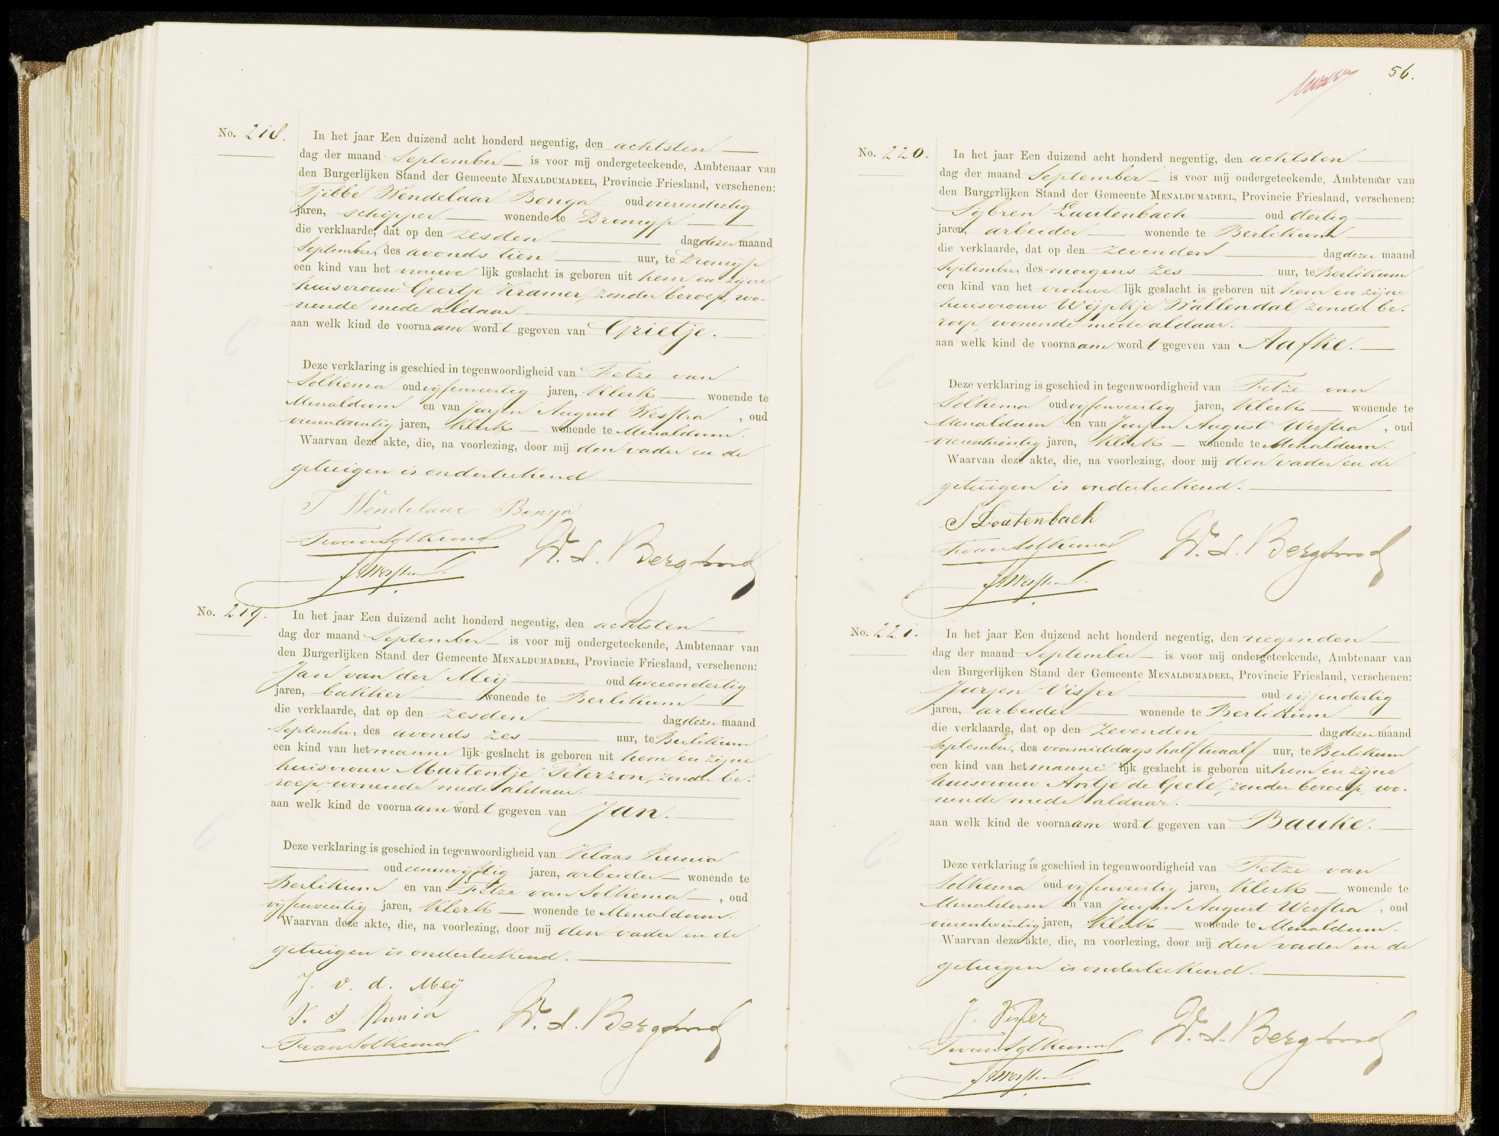 No. 218.
In het jaar Een duizend acht honderd negentig, den achtsten
dag der maand September is voor mij ondergeteekende, Ambtenaar van
den Burgerlijken Stand der Gemeente MENALDUMADEEL, Provincie Friesland, verschenen:
Tjibbe Wendelaar Bonga oud vierendertig
jaren, schipper wonende te Dronrijp
die verklaarde, dat op den zesden dag dezer maand
September, des avonds tien uur, te Dronrijp
een kind van het vrouwelijk geslacht is geboren uit hem en zijne
huisvrouw Geertje Kramer, zonder beroep, wo-
nende mede aldaar.
aan welk kind de voornaam wordt gegeven van Grietje.
Deze verklaring is geschied in tegenwoordigheid van Fetze van
Solkema oud vijfenveertig jaren, klerk wonende te
Menaldum en van Jurjen August Westra, oud
vierentwintig jaren, klerk wonende te Menaldum.
Waarvan deze akte, die, na voorlezing, door mij den vader en de
getuigen is onderteekend
T Wendelaar Bonga
F van Solkema
W. d. Bergh
J A Westra
No. 219.
In het jaar Een duizend acht honderd negentig, den achtsten
dag der maand September is voor mij ondergeteekende, Ambtenaar van
den Burgerlijken Stand der Gemeente MENALDUMADEEL, Provincie Friesland, verschenen:
Jan van der Meij oud tweeendertig
jaren, bakker wonende te Berlikum
die verklaarde, dat op den zesden dag dezer maand
September, des avonds zes uur, te Berlikum
een kind van het mannelijk geslacht is geboren uit hem en zijne
huisvrouw Martentje Peterzon, zonder be-
roep, wonende mede aldaar.
aan welk kind de voornaam wordt gegeven van Jan.
Deze verklaring is geschied in tegenwoordigheid van Klaas Runia
oud eenenvijftig jaren, arbeider wonende te
Berlikum en van Fetze van Solkema, oud
vijfenveertig jaren, klerk wonende te Menaldum.
Waarvan deze akte, die, na voorlezing, door mij den vader en de
getuigen is onderteekend.
J. v. d. Meij
K. J. Runia
F van Solkema
56.
No. 220.
In het jaar Een duizend acht honderd negentig, den achtsten
dag der maand September is voor mij ondergeteekende, Ambtenaar van
den Burgerlijken Stand der Gemeente MENALDUMADEEL, Provincie Friesland, verschenen:
Sybren Lautenbach oud dertig
jaren, arbeider wonende te Berlikum
die verklaarde, dat op den zevenden dag dezer maand
September, des morgens zes uur, te Berlikum
een kind van het vrouwelijk geslacht is geboren uit hem en zijne
huisvrouw Wijpkje Wallendal, zonder be-
roep, wonende mede aldaar.
aan welk kind de voornaam wordt gegeven van Aafke.
Deze verklaring is geschied in tegenwoordigheid van Fetze van
Solkema oud vijfenveertig jaren, klerk wonende te
Menaldum en van Jurjen August Westra, oud
vierentwintig jaren, klerk wonende te Menaldum.
Waarvan deze akte, die, na voorlezing, door mij den vader en de
getuigen is onderteekend.
S Loutenbach
F van Solkema
J A Westra
No. 221.
In het jaar Een duizend acht honderd negentig, den negenden
dag der maand September is voor mij ondergeteekende, Ambtenaar van
den Burgerlijken Stand der Gemeente MENALDUMADEEL, Provincie Friesland, verschenen:
Jurjen Visser oud vijfendertig
jaren, arbeider wonende te Berlikum
die verklaarde, dat op den zevenden dag dezer maand
September, des voormiddags half twaalf uur, te Berlikum
een kind van het mannelijk geslacht is geboren uit hem en zijne
huisvrouw Antje de Geele, zonder beroep, wo-
nende mede aldaar.
aan welk kind de voornaam wordt gegeven van Bauke.
Deze verklaring is geschied in tegenwoordigheid van Fetze van
Solkema oud vijfenveertig jaren, klerk wonende te
Menaldum en van Jurjen August Westra, oud
vierentwintig jaren, klerk wonende te Menaldum.
Waarvan deze akte, die, na voorlezing, door mij den vader en de
getuigen is onderteekend.
J. Visser
F van Solkema
J A Westra